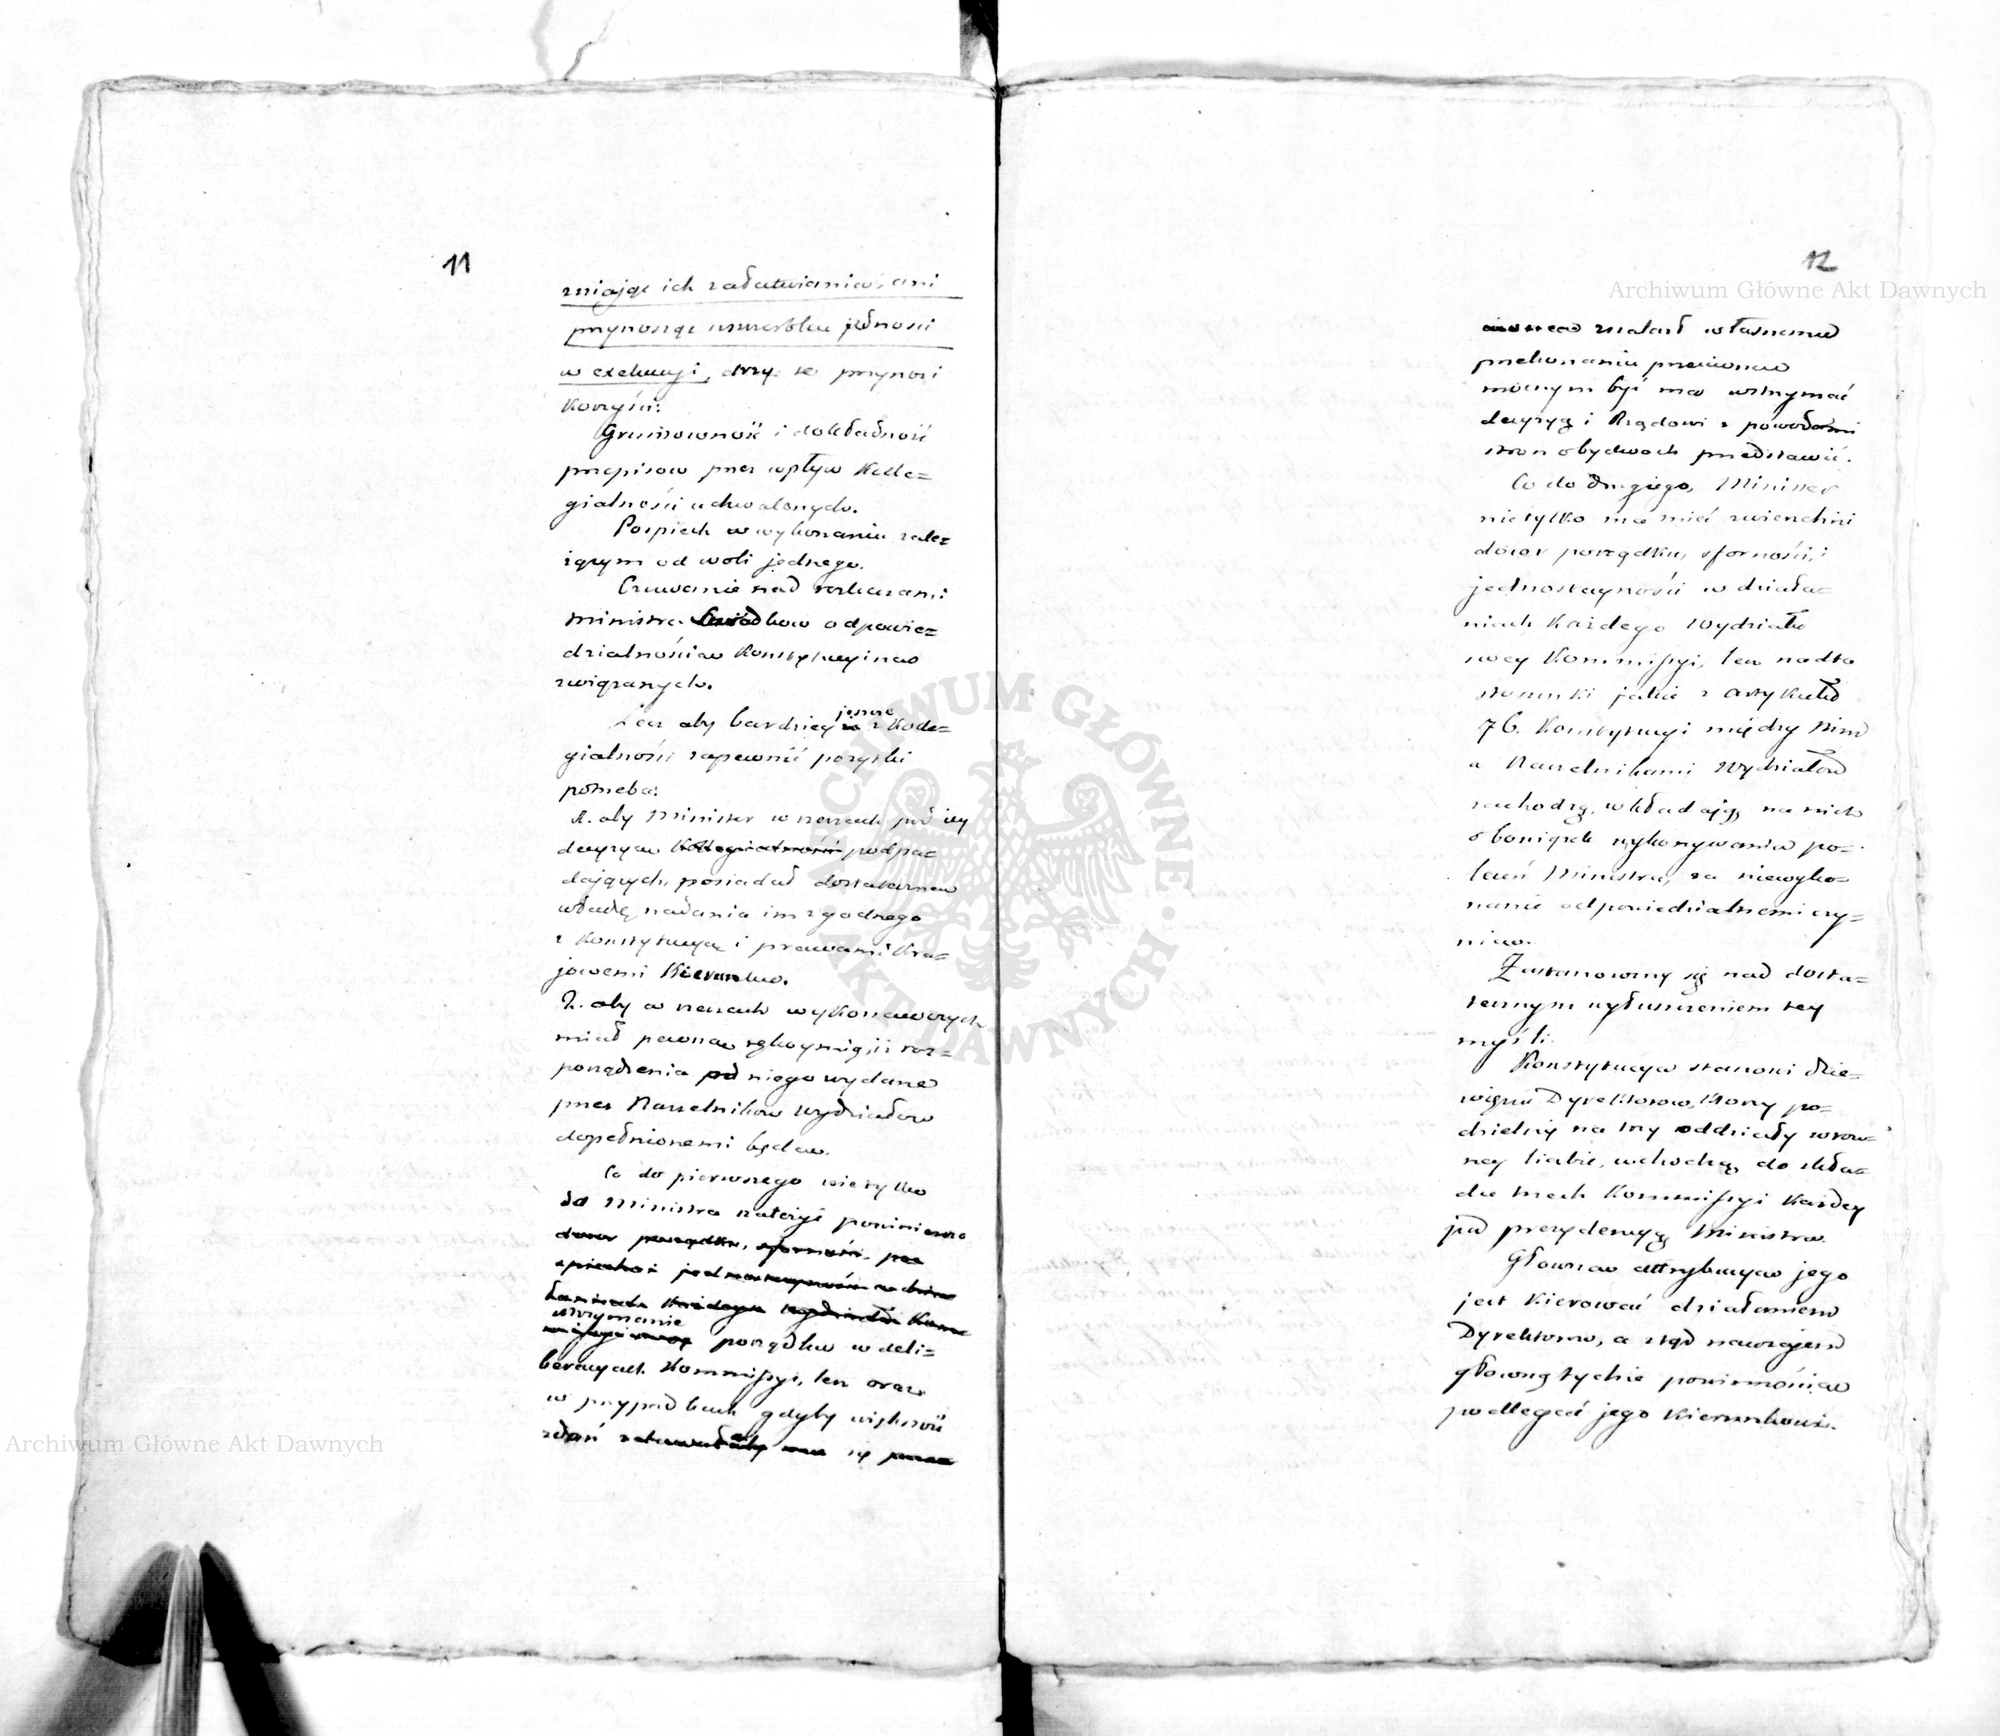 11
zniając ich załatwianiu, ani
przynosząc uszczerbku jedności
w exekucyi, trzy te przynosi
Korzyści:
Gruntowność i dokładność
przepisow przez wpływ Kolle=
gialności uchwalonych.
Pospiech w wykonaniu zale=
żącym od woli jednego.
Czuwanie nad rozkazami
ministra Świadkow odpowie=
dzialnością Konstytucyiną
związanych.
Lecz aby bardziey jeszcze z Kole=
gialności zapewnić pożytki
potrzeba:
1. aby Minister w rzeczach pod iey
decyzyą Kollegialności podpa=
dających, posiadał dostateczną
władzę nadania im zgodnego
z Konstytucyą i prawami Kra=
jowemi Kierunku.
2. aby w rzeczach wykonawczych
miał pewną rękoymię, iż roz=
porządzenia od niego wydane
przez Naczelnikow Wydziałow
dopełnionemi będą.
Co do pierwszego nietylko
do Ministra należyć powinno
dozor porządku, sforności, po=
spiechu i jednostayności w dzia=
łaniach Każdego wydziału Kom=
utrzymanie
missyi swey porządku w deli=
beracyach Kommissyi, lecz oraz
w przypadkach gdyby większość
zdań się
12
Archiwum Główne Akt Dawnych
znalazł własnemu
przekonaniu przeciwną
mocnym być ma wstrzymać
decyzyą i Rządowi z powodami
stron obydwoch przedstawić.
Co do drugiego, Minister
nietylko ma mieć zwierzchni
dozor porządku, sforności, i
jednostayności w działa=
niach Każdego Wydziału
swey Kommissyi, lecz nadto
stosunki jakie z Artykułu
76. Konstytucyi między nim
a Naczelnikami Wydziałow
zachodzą, wkładają na nich
obowiązek wykonywania po=
leceń Ministra, za niewyko=
nanie odpowiedzialnemi czy=
niąc.
Zastanowmy się nad dosta=
tecznym wyłuszczeniem tey
myśli.
Konstytucya stanowi dzie=
więciu Dyrektorow, Ktorzy po=
dzieleni na trzy oddziały w row=
ney liczbie, wchodzą do skła=
du trzech Kommissyi Każdey
pod prezydencyą Ministra.
Głowną attrybucyą jego
jest Kierować działaniem
Dyrektorow, a ztąd nawzajem
głowną tychże powinnością
podlegać jego Kierunkowi.
Archiwum Główne Akt Dawnych
ARCHIWUM GŁÓWNE · AKT DAWNYCH ·